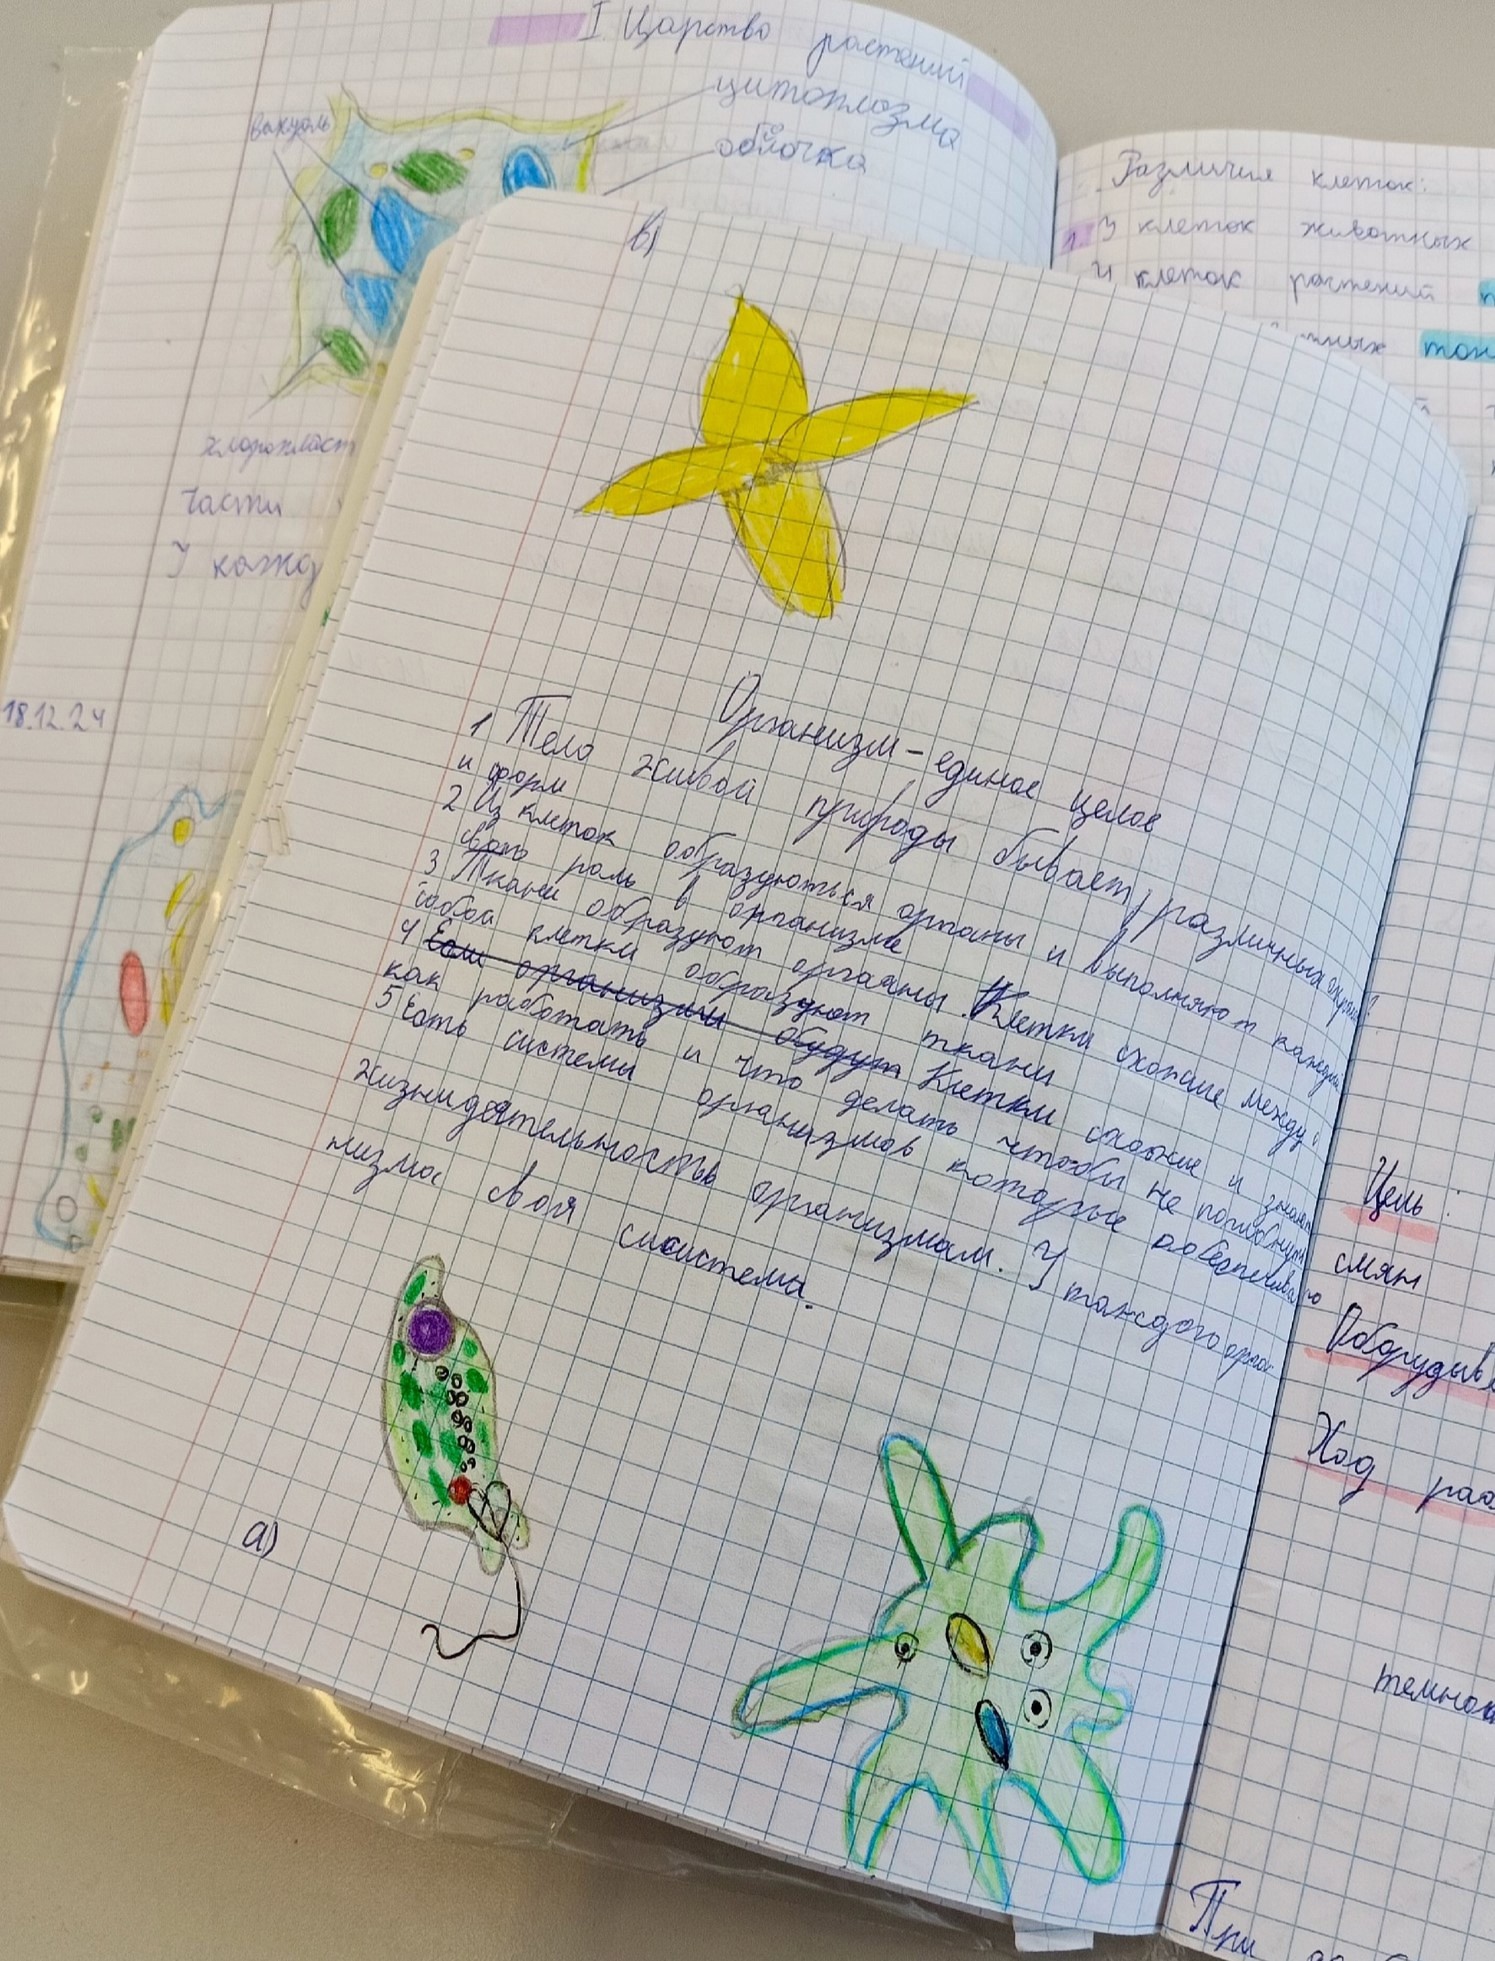 I Царство растений
цитоплозма
оболочка
вакуоль
хлоропласт
части
У кажд
18.12.24
Различия клеток:
1. У клеток животных
У клеток растений
тон
в)
Организм - единое целое
1 Тело живой природы бывает различных
и форм
2 Из клеток образуються органы и выполняют каждый
свою роль в организме
3 Ткани образуют органы. Клетки схожие между
собой клетки образуют ткани
4 Если организмы будут Клетки схожие и знают
как работать и что делать чтобы не погибнуть
5 Есть системы организмов которые обеспечиваю
жизнидеятельность организмам. У каждого орга-
низма своя система.
а)
Цель:
смян
Оборудыв
Ход раб
темной
При